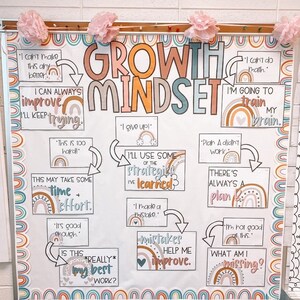 GROWTH
MINDSET
"I can't make
this any
better."
I CAN ALWAYS
improve,
I'LL KEEP
trying.
"This is too
hard!"
THIS MAY TAKE SOME
time &
effort.
"It's good
enough."
IS THIS *REALLY*
my best
WORK?
"I give up!"
I'LL USE SOME
OF THE
strategies
I've
learned.
"I made a
mistake."
mistakes
HELP ME
improve.
"I can't do
math."
I'M GOING TO
train
MY
brain.
"Plan A didn't
work."
THERE'S
ALWAYS
plan
"I'm not good
at this."
WHAT AM I
missing?